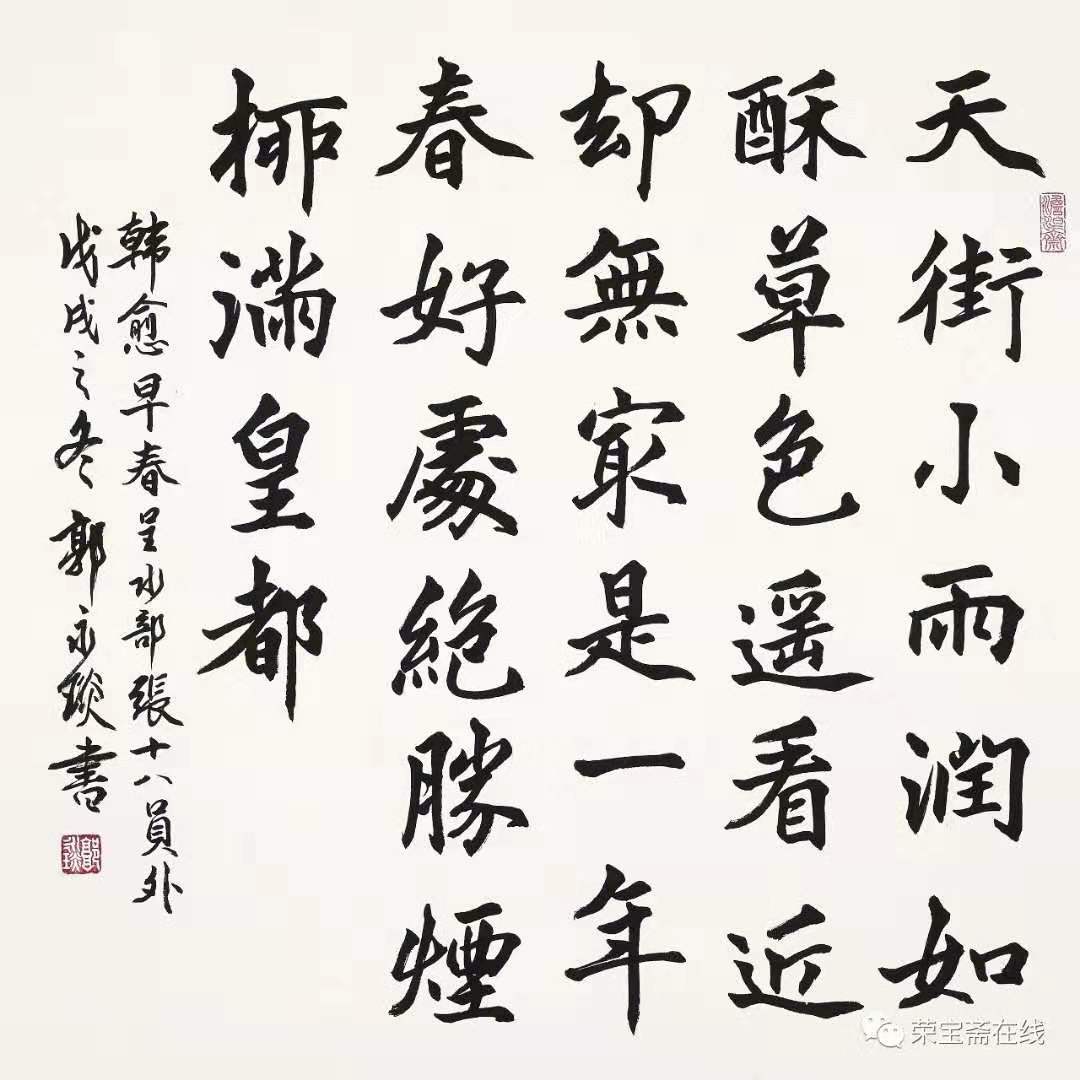 天街小雨潤如
酥草色遥看近
却無最是一年
春好處絶勝煙
柳滿皇都
韩愈早春呈水部張十八員外
戊戌之冬郭永琰書
荣宝斋在线